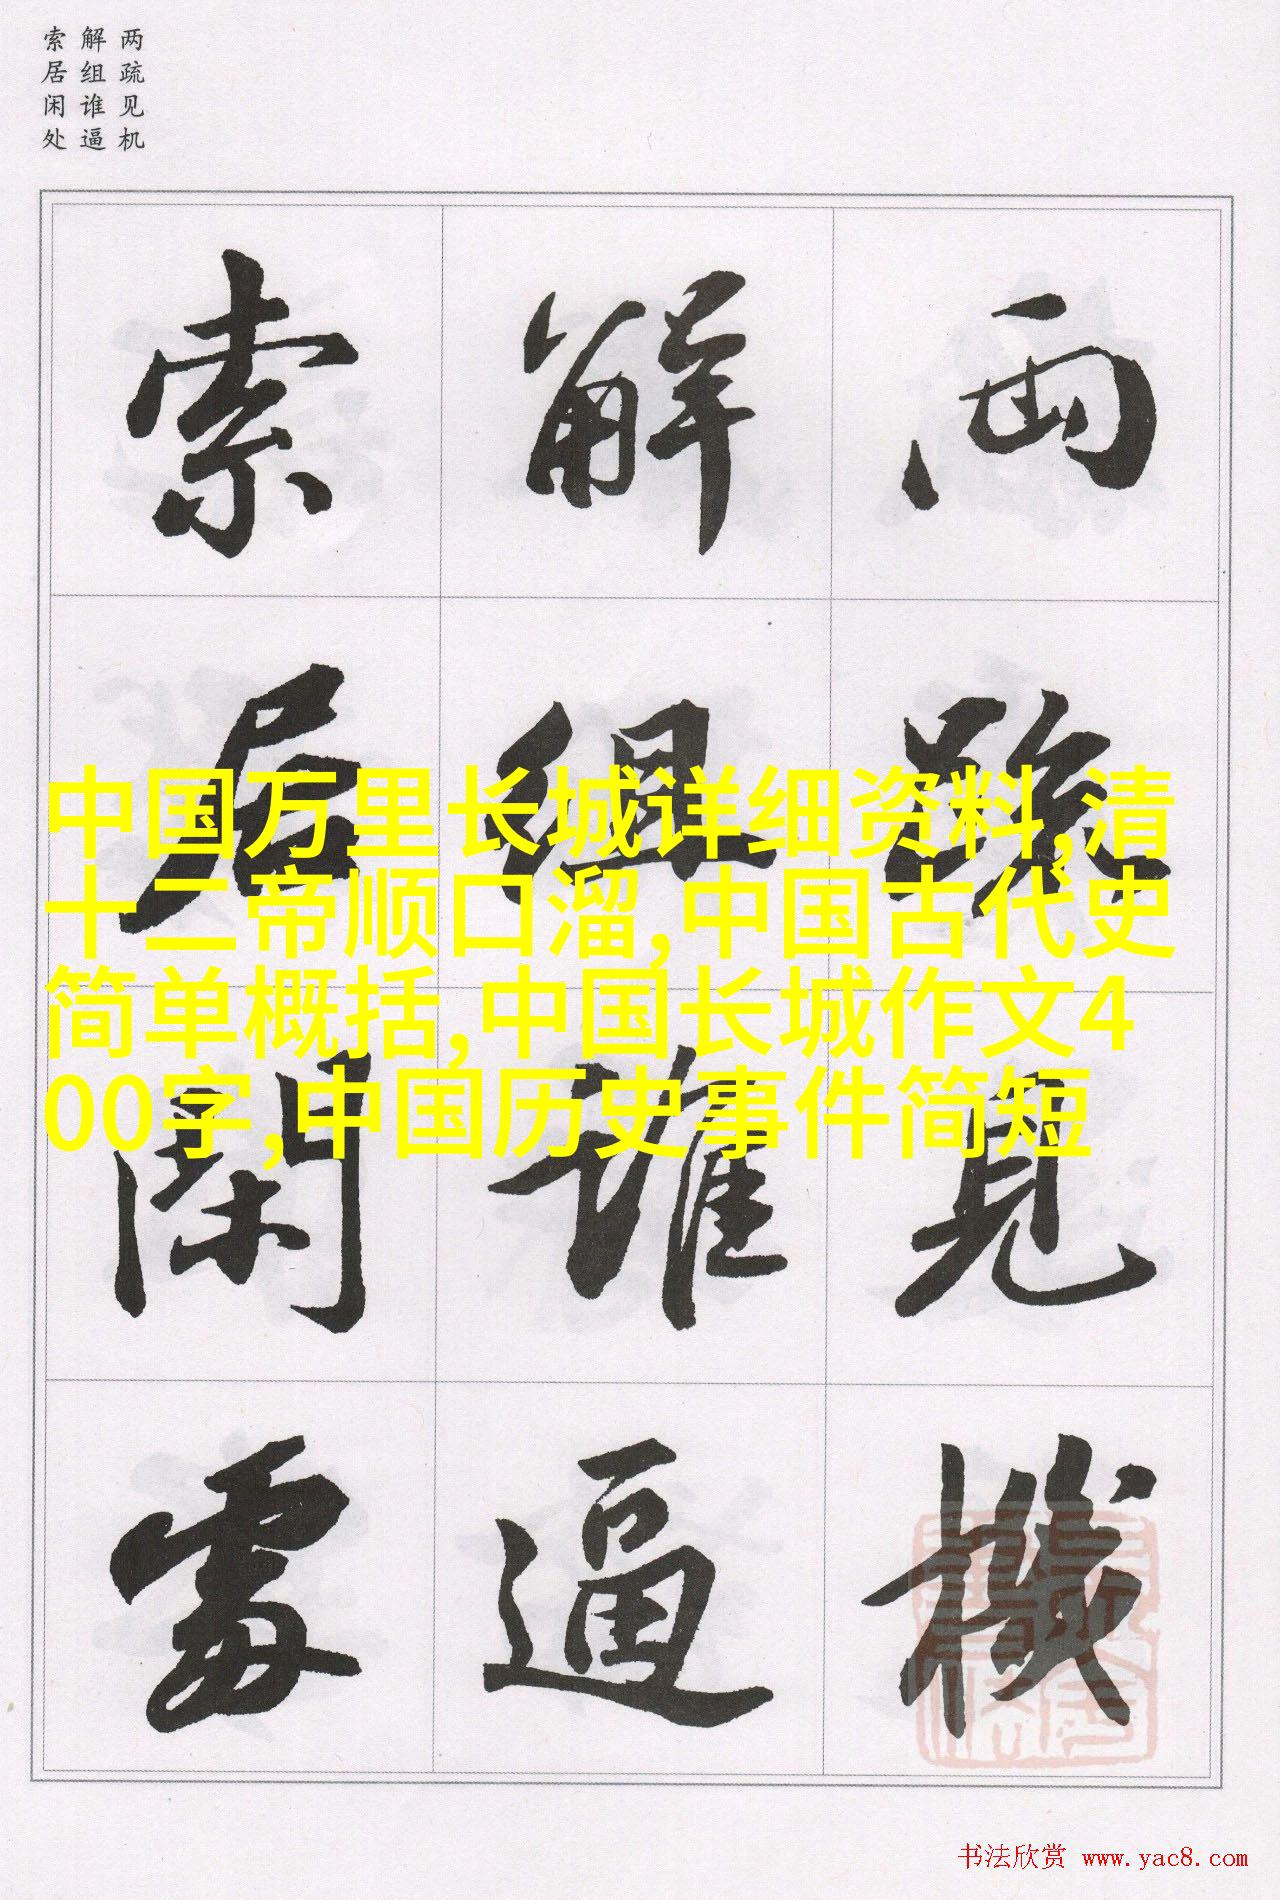 两疏见机
解组谁逼
索居闲处
兩疏見機
解組誰逼
索居閑處
中国万里长城详细资料,清
十二帝顺口溜,中国古代史
简单概括,中国长城作文4
00字,中国历史事件简短
书法欣赏 www.yac8.com